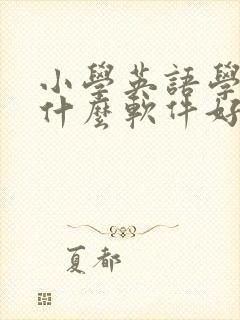 小學英語學
什麼軟件好
夏都